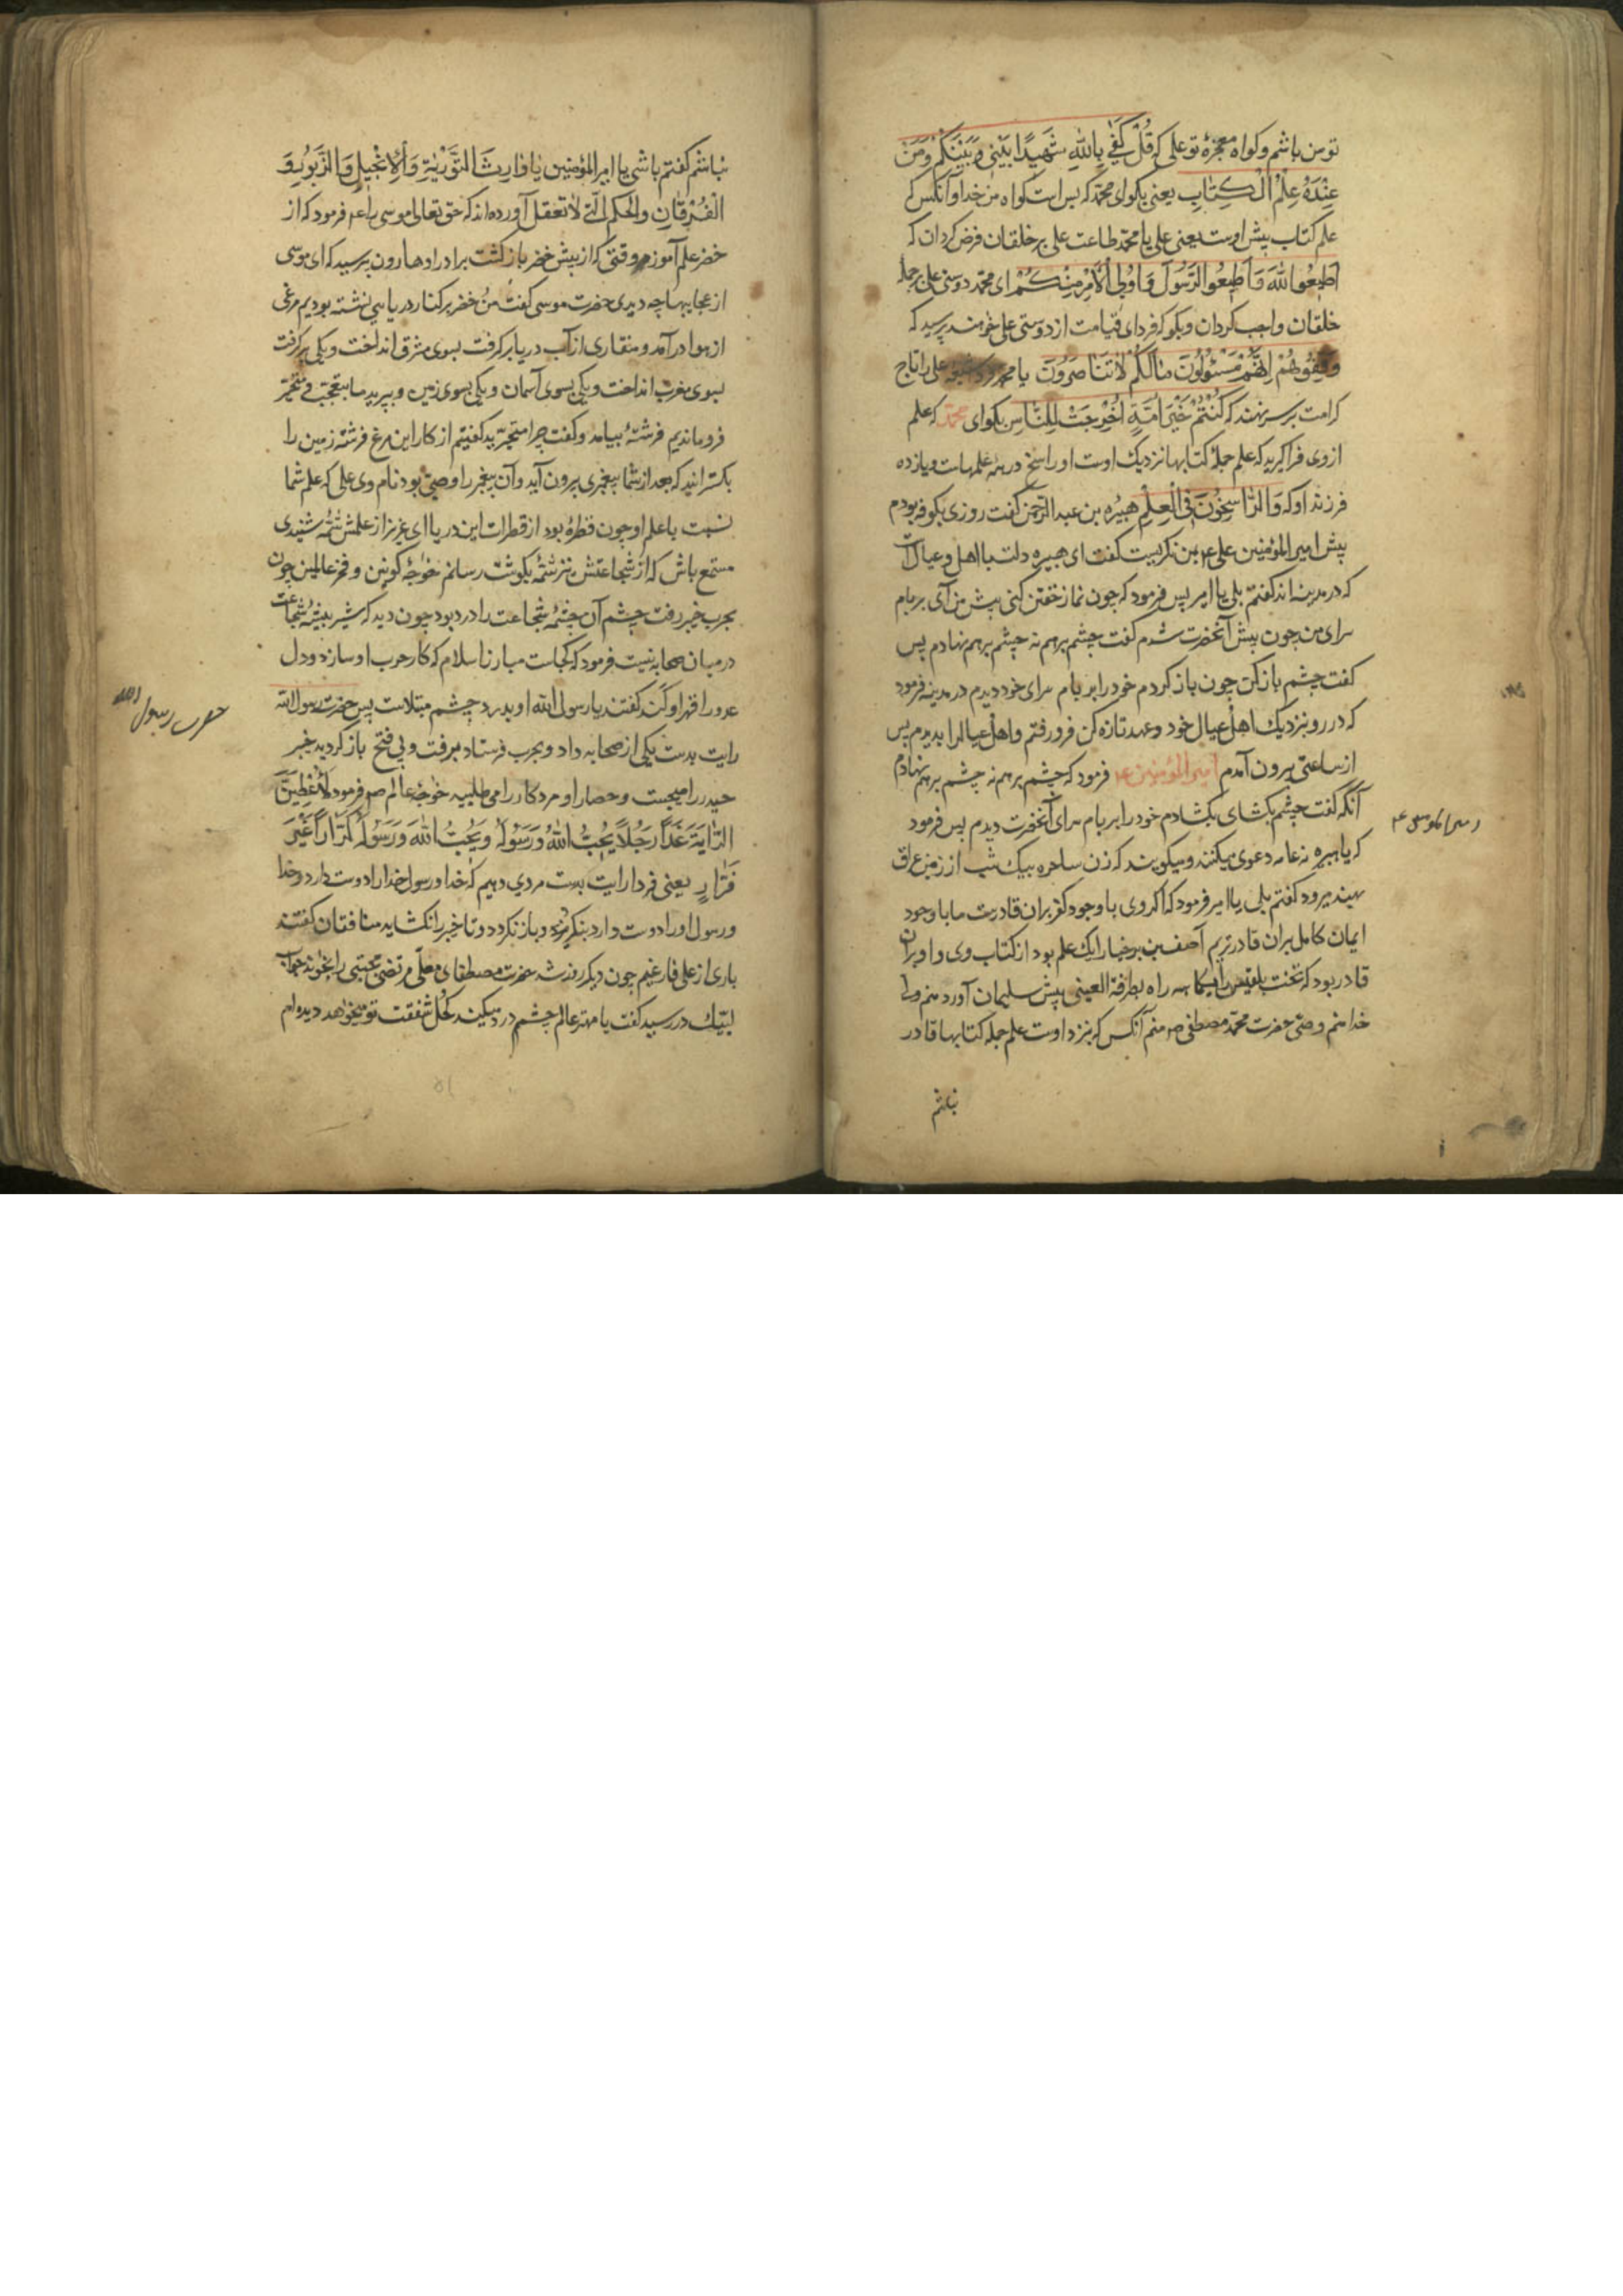 تو من باشم و کواه معجزهٔ تو علی که قُلْ کَفٰی بِاللهِ شَهِیدًا بَیْنِی وَ بَیْنَکُمْ وَمَنْ
عِنْدَهُ عِلْمُ الْکِتَابِ یعنی بکو ای محمد که بس است کواه من خدا و آنکس که
علم کتاب پیش اوست یعنی علی یا محمد طاعت علی بر خلقان فرض کردان که
اَطِیعُوا اللهَ وَ اَطِیعُوا الرَّسُولَ وَ اُولِی الْاَمْرِ مِنْکُمْ ای محمد دوستی علی بر جمله
خلقان واجب کردان و بکو که فردای قیامت از دوستی علی خواهند پرسید که
وَقِفُوهُمْ اِنَّهُمْ مَسْئُولُونَ مَا لَکُمْ لَا تَنَاصَرُونَ یا محمد علی را تاج
کرامت بر سر نهند که کُنْتُمْ خَیْرَ اُمَّةٍ اُخْرِجَتْ لِلنَّاسِ بکو ای محمد که علم
از وی فرا کیرید که علم جملهٔ کتابها نزدیک اوست او راسخ در همه علمهاست و یازده
فرزند او که وَالرَّاسِخُونَ فِی الْعِلْمِ هبیره بن عبد الرحمن کفت روزی بکوفه بودم
پیش امیر المؤمنین علی ع بمن نکریست کفت ای هبیره دلت با اهل و عیال است
که در مدینه اند کفتم بلی یا امیر پس فرمود که چون نماز خفتن کنی پیش من آی بر بام
سرای من چون پیش آنحضرت شدم کفت چشم بر هم نه چشم بر هم نهادم پس
کفت چشم باز کن چون باز کردم خود را بر بام سرای خود دیدم در مدینه فرمود
که در رو بنزدیک اهل عیال خود و عهد تازه کن فرو رفتم و اهل عیال را بدیدم پس
از ساعتی بیرون آمدم امیر المؤمنین ع فرمود که چشم بر هم نه چشم بر هم نهادم
آنکه کفت چشم بکشای بکشادم خود را بر بام سرای آنحضرت دیدم پس فرمود
که یا هبیره نه عامه دعوی میکنند و میکویند که زن ساحره بیک شب از زمین عراق
بهند میرود کفتم بلی یا امیر فرمود که اکر وی با وجود کفر بران قادرست ما با وجود
ایمان کامل بران قادرتریم آصف بن برخیا را یک علم بود از کتاب وی و او بران
قادر بود که تخت بلقیس را یکماهه راه بطرفة العینی پیش سلیمان آورد منم ولی
خدا منم وصی حضرت محمد مصطفی ص منم آنکس که نزد اوست علم جمله کتابها قادر
نباشم
نباشم کفتم باشی یا امیر المؤمنین یا وارث التَّوْرٰیةِ وَالْاِنْجِیلِ وَالزَّبُورِ وَ
الْفُرْقَانِ والحکم الّتی لا تعقل آورده اند که حق تعالی موسی را ع فرمود که از
خضر علم آموز وقتی که از پیش خضر باز کشت برادر او هارون پرسید که ای موسی
از عجایبها چه دیدی حضرت موسی کفت من و خضر بر کنار دریایی نشسته بودیم مرغی
از هوا درآمد و منقاری از آب دریا بر کرفت بسوی مشرق انداخت و یکی بر کرفت
بسوی مغرب انداخت و یکی بسوی آسمان و یکی بسوی زمین و بپرید ما متعجب و متحیر
فرو ماندیم فرشتهٔ بیامد و کفت چرا متحیرید کفتیم از کار این مرغ فرشته زمین را
بکسترانید که بعد از شما پیغمبری بیرون آید و آن پیغمبر را وصیی بود نام وی علی که علم شما
نسبت با علم او چون قطرهٔ بود از قطرات این دریا ای عزیز از علمش شمه شنیدی
مستمع باش که از شجاعتش نیز شمهٔ بکوشت رسانم خواجهٔ کونین و فخر عالمین چون
بحرب خیبر رفت چشم آن چشمهٔ شجاعت را درد بود چون دید که شیر بیشهٔ شجاعت
در میان صحابه نیست فرمود که کجاست مبارز اسلام که کار حرب او سازد و دل
عدو را قهر او کند کفتند یا رسول الله او بدرد چشم مبتلاست پس حضرت رسول الله
رایت بدست یکی از صحابه داد و بحرب فرستاد برفت و بی فتح باز کردید خیبر
حیدر را میجست و حصار او مرد کار را می طلبید خواجهٔ عالم ص فرمود لَاُعْطِیَنَّ
الرَّایَةَ غَدًا رَجُلًا یُحِبُّ اللهُ وَرَسُولُهُ وَیُحِبُّ اللهَ وَرَسُولَهُ کَرَّارًا غَیْرَ
فَرَّارٍ یعنی فردا رایت بدست مردی دهیم که خدا و رسول خدا را دوست دارد و خدا
و رسول او را دوست دارد بنکریزد و باز نکردد و تا خیبر را نکشاید منافقان کفتند
باری از علی فارغیم چون دیکر روز شد حضرت مصطفای معلّی مرتضی مجتبی را بخواند جواب
لبّیک در رسید کفت یا مهتر عالم چشم درد میکند کحل شفقت تو میخواهد دیده ام
حضرت رسول الله